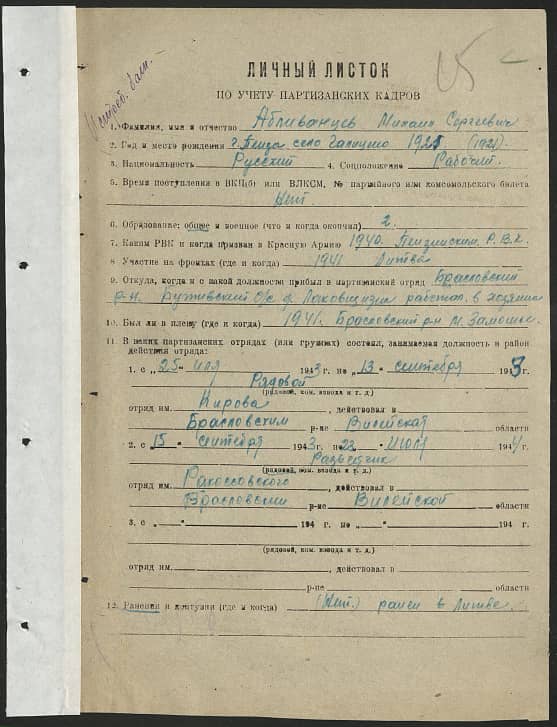 ЛИЧНЫЙ ЛИСТОК
ПО УЧЕТУ ПАРТИЗАНСКИХ КАДРОВ
1. Фамилия, имя и отчество Абливанцев Михаил Сергеевич
2. Год и место рождения г. Пенза село 1925 (1921)
3. Национальность Русский 4. Соцположение Рабочий.
5. Время поступления в ВКП(б) или ВЛКСМ, № партийного или комсомольского билета
Нет
6. Образование: общее и военное (что и когда окончил) 2.
7. Каким РВК и когда призван в Красную Армию 1940. Пензинским. Р.В.К.
8 Участие на фронтах (где и когда) 1941 Литва
9 Откуда, когда и с какой должности прибыл в партизанский отряд Брасловский
р-н. с/с д. работал. в хозяина
10. Был ли в плену (где и когда) 1941. Брасловский р-н м. Замошье.
11 В каких партизанских отрядах (или группах) состоял, занимаемая должность и район
действия отряда:
1. с „25" июл 1943 г. по „13" сентября 1943
Рядовой
(рядовой, ком. взвода и т. д.)
отряд им. Кирова, действовал в
Брасловским р-не Вилейская области
2. с „15" сентября 1943 г. по „22" июля 1944
Разведчик
(рядовой, ком. взвода и т. д.)
отряд им. Рокоссовского, действовал в
Брасловским р-не Вилейской области
3. с „ " 194 г. по „ " 194 г.
(рядовой, ком. взвода и т. д.)
отряд им. , действовал в
р-не области
12. Ранения и контузии (где и когда) (Нет.) ранен в Литве.